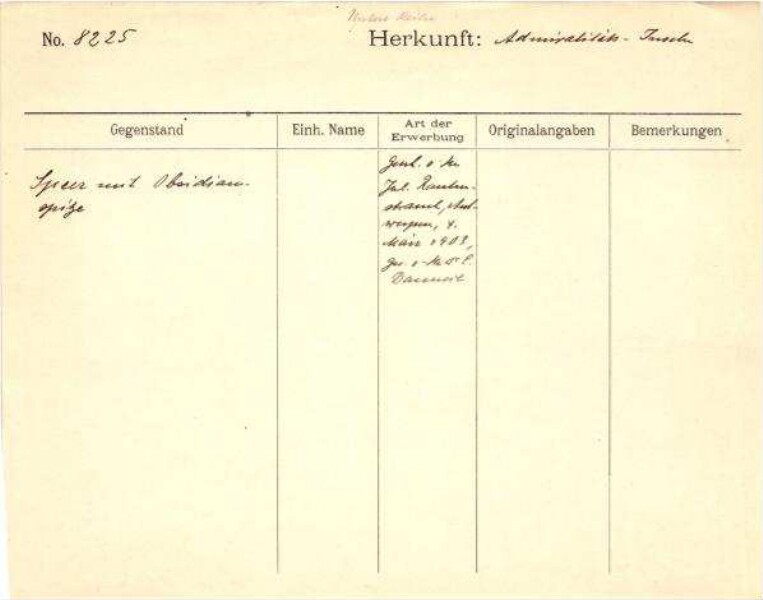 No. 8225
Herkunft: Admiralitäts-Inseln
Gegenstand
Einh. Name
Art der
Erwerbung
Originalangaben
Bemerkungen
Speer mit Obsidian-
spitze
Gesch. v. Hn
Jul. Rauten-
strauch, Ant-
werpen, 4.
März 1903,
ges. v. Hn